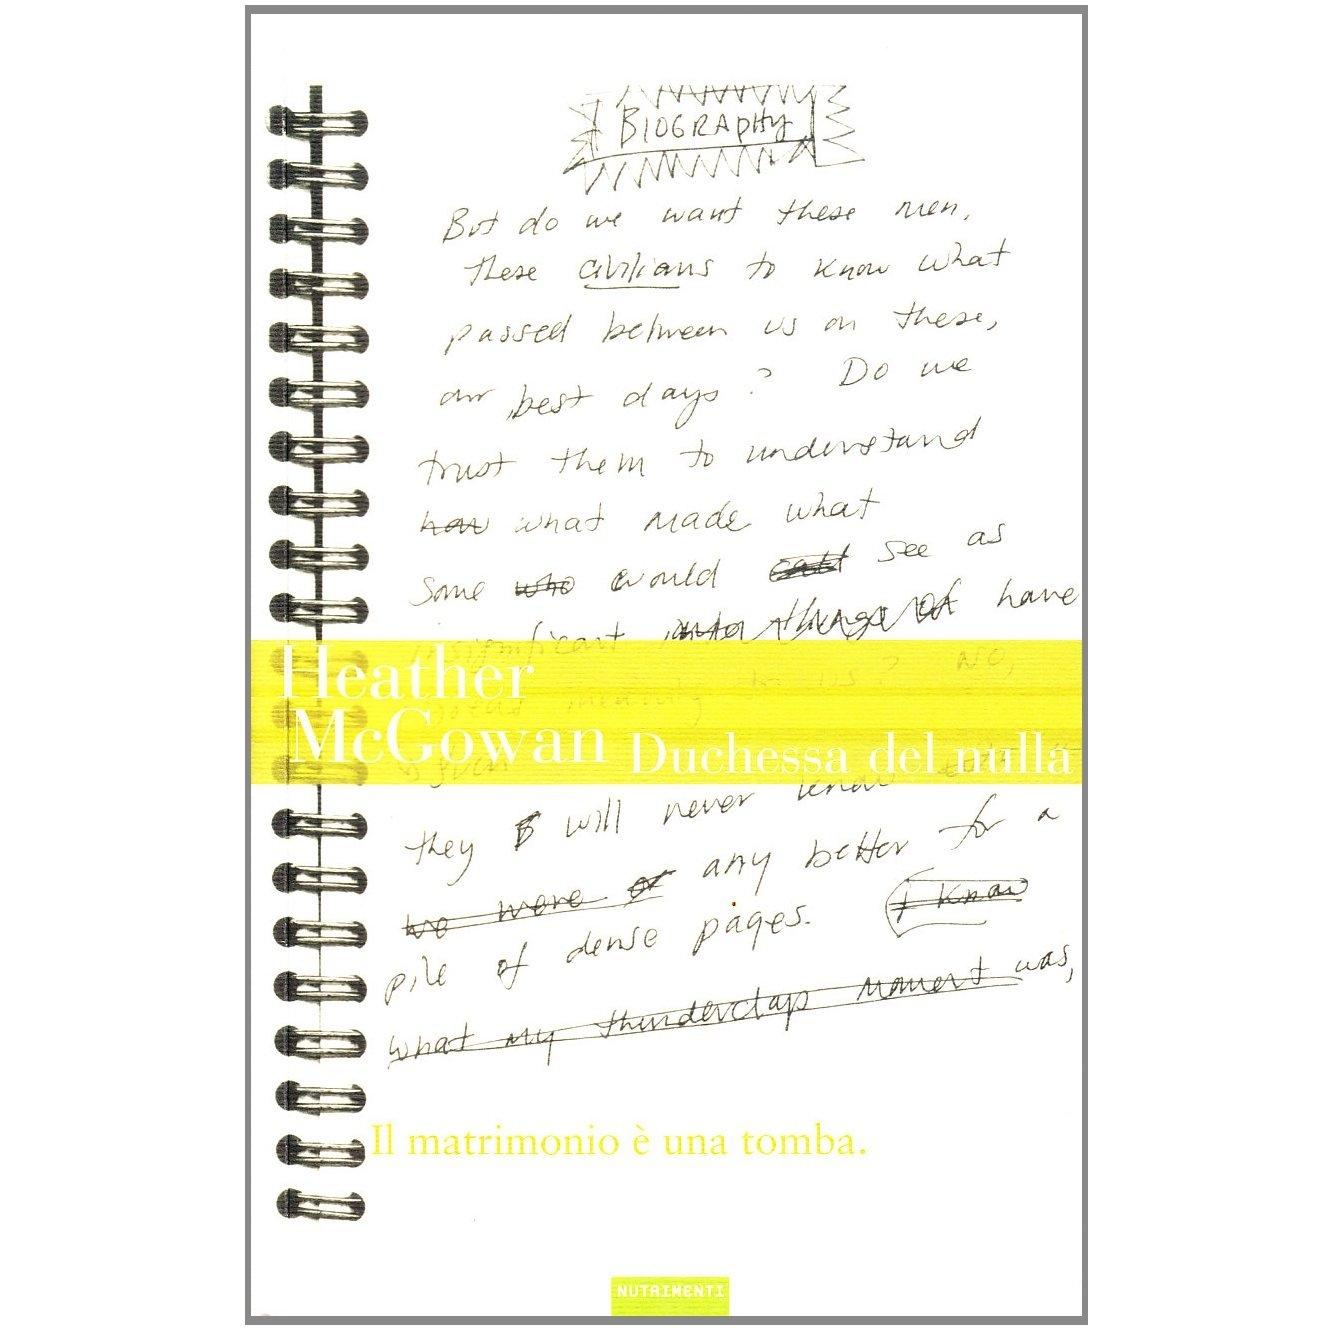 BIOGRAPHY
But do we want these men,
these civilians to know what
passed between us on these,
our best days? Do we
trust them to understand
how what made what
some who would see as
insignificant into things of have
meaning to us? No,
Heather
McGowan Duchessa del nulla
such
they will never know
we were or any better for a
pile of dense pages. I know
what my thunderclap moment was,
Il matrimonio è una tomba.
NUTRIMENTI